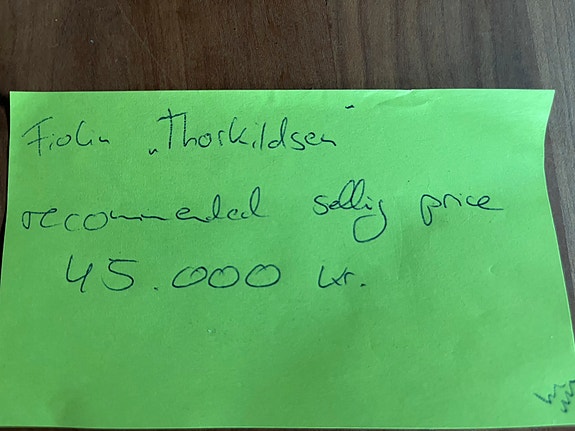 Fiolin „Thorkildsen"
recommended sellig price
45.000 kr.